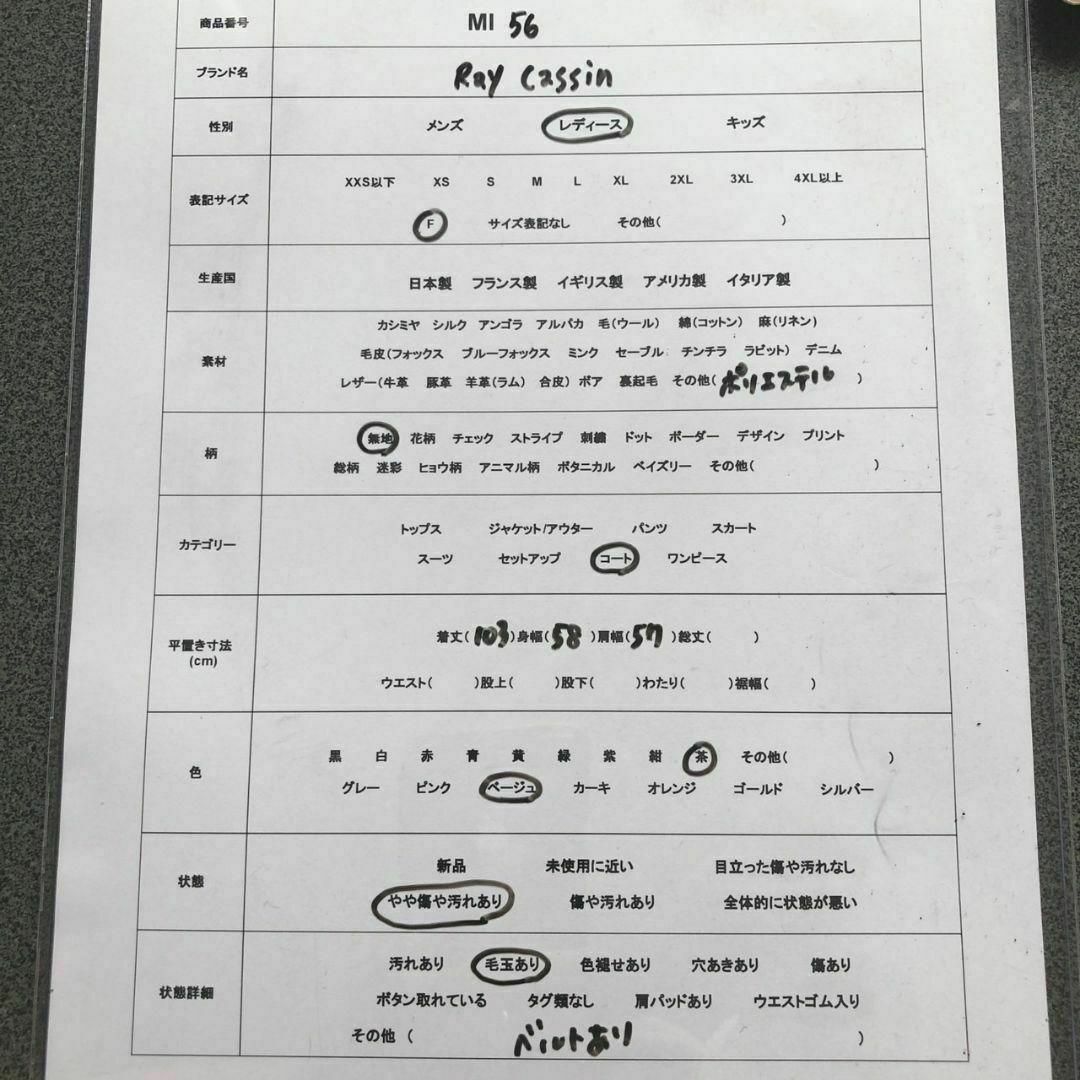 商品番号 MI 56
ブランド名 Ray Cassin
性別 メンズ レディース キッズ
表記サイズ XXS以下 XS S M L XL 2XL 3XL 4XL以上
F サイズ表記なし その他( )
生産国 日本製 フランス製 イギリス製 アメリカ製 イタリア製
カシミヤ シルク アンゴラ アルパカ 毛(ウール) 綿(コットン) 麻(リネン)
素材 毛皮(フォックス ブルーフォックス ミンク セーブル チンチラ ラビット) デニム
レザー(牛革 豚革 羊革(ラム) 合皮) ボア 裏起毛 その他(ポリエステル )
柄 無地 花柄 チェック ストライプ 刺繍 ドット ボーダー デザイン プリント
総柄 迷彩 ヒョウ柄 アニマル柄 ボタニカル ペイズリー その他( )
カテゴリー トップス ジャケット/アウター パンツ スカート
スーツ セットアップ コート ワンピース
平置き寸法 着丈(103)身幅(58)肩幅(57)総丈( )
(cm)
ウエスト( )股上( )股下( )わたり( )裾幅( )
色 黒 白 赤 青 黄 緑 紫 紺 茶 その他( )
グレー ピンク ベージュ カーキ オレンジ ゴールド シルバー
状態 新品 未使用に近い 目立った傷や汚れなし
やや傷や汚れあり 傷や汚れあり 全体的に状態が悪い
状態詳細 汚れあり 毛玉あり 色褪せあり 穴あきあり 傷あり
ボタン取れている タグ類なし 肩パッドあり ウエストゴム入り
その他( ベルトあり )